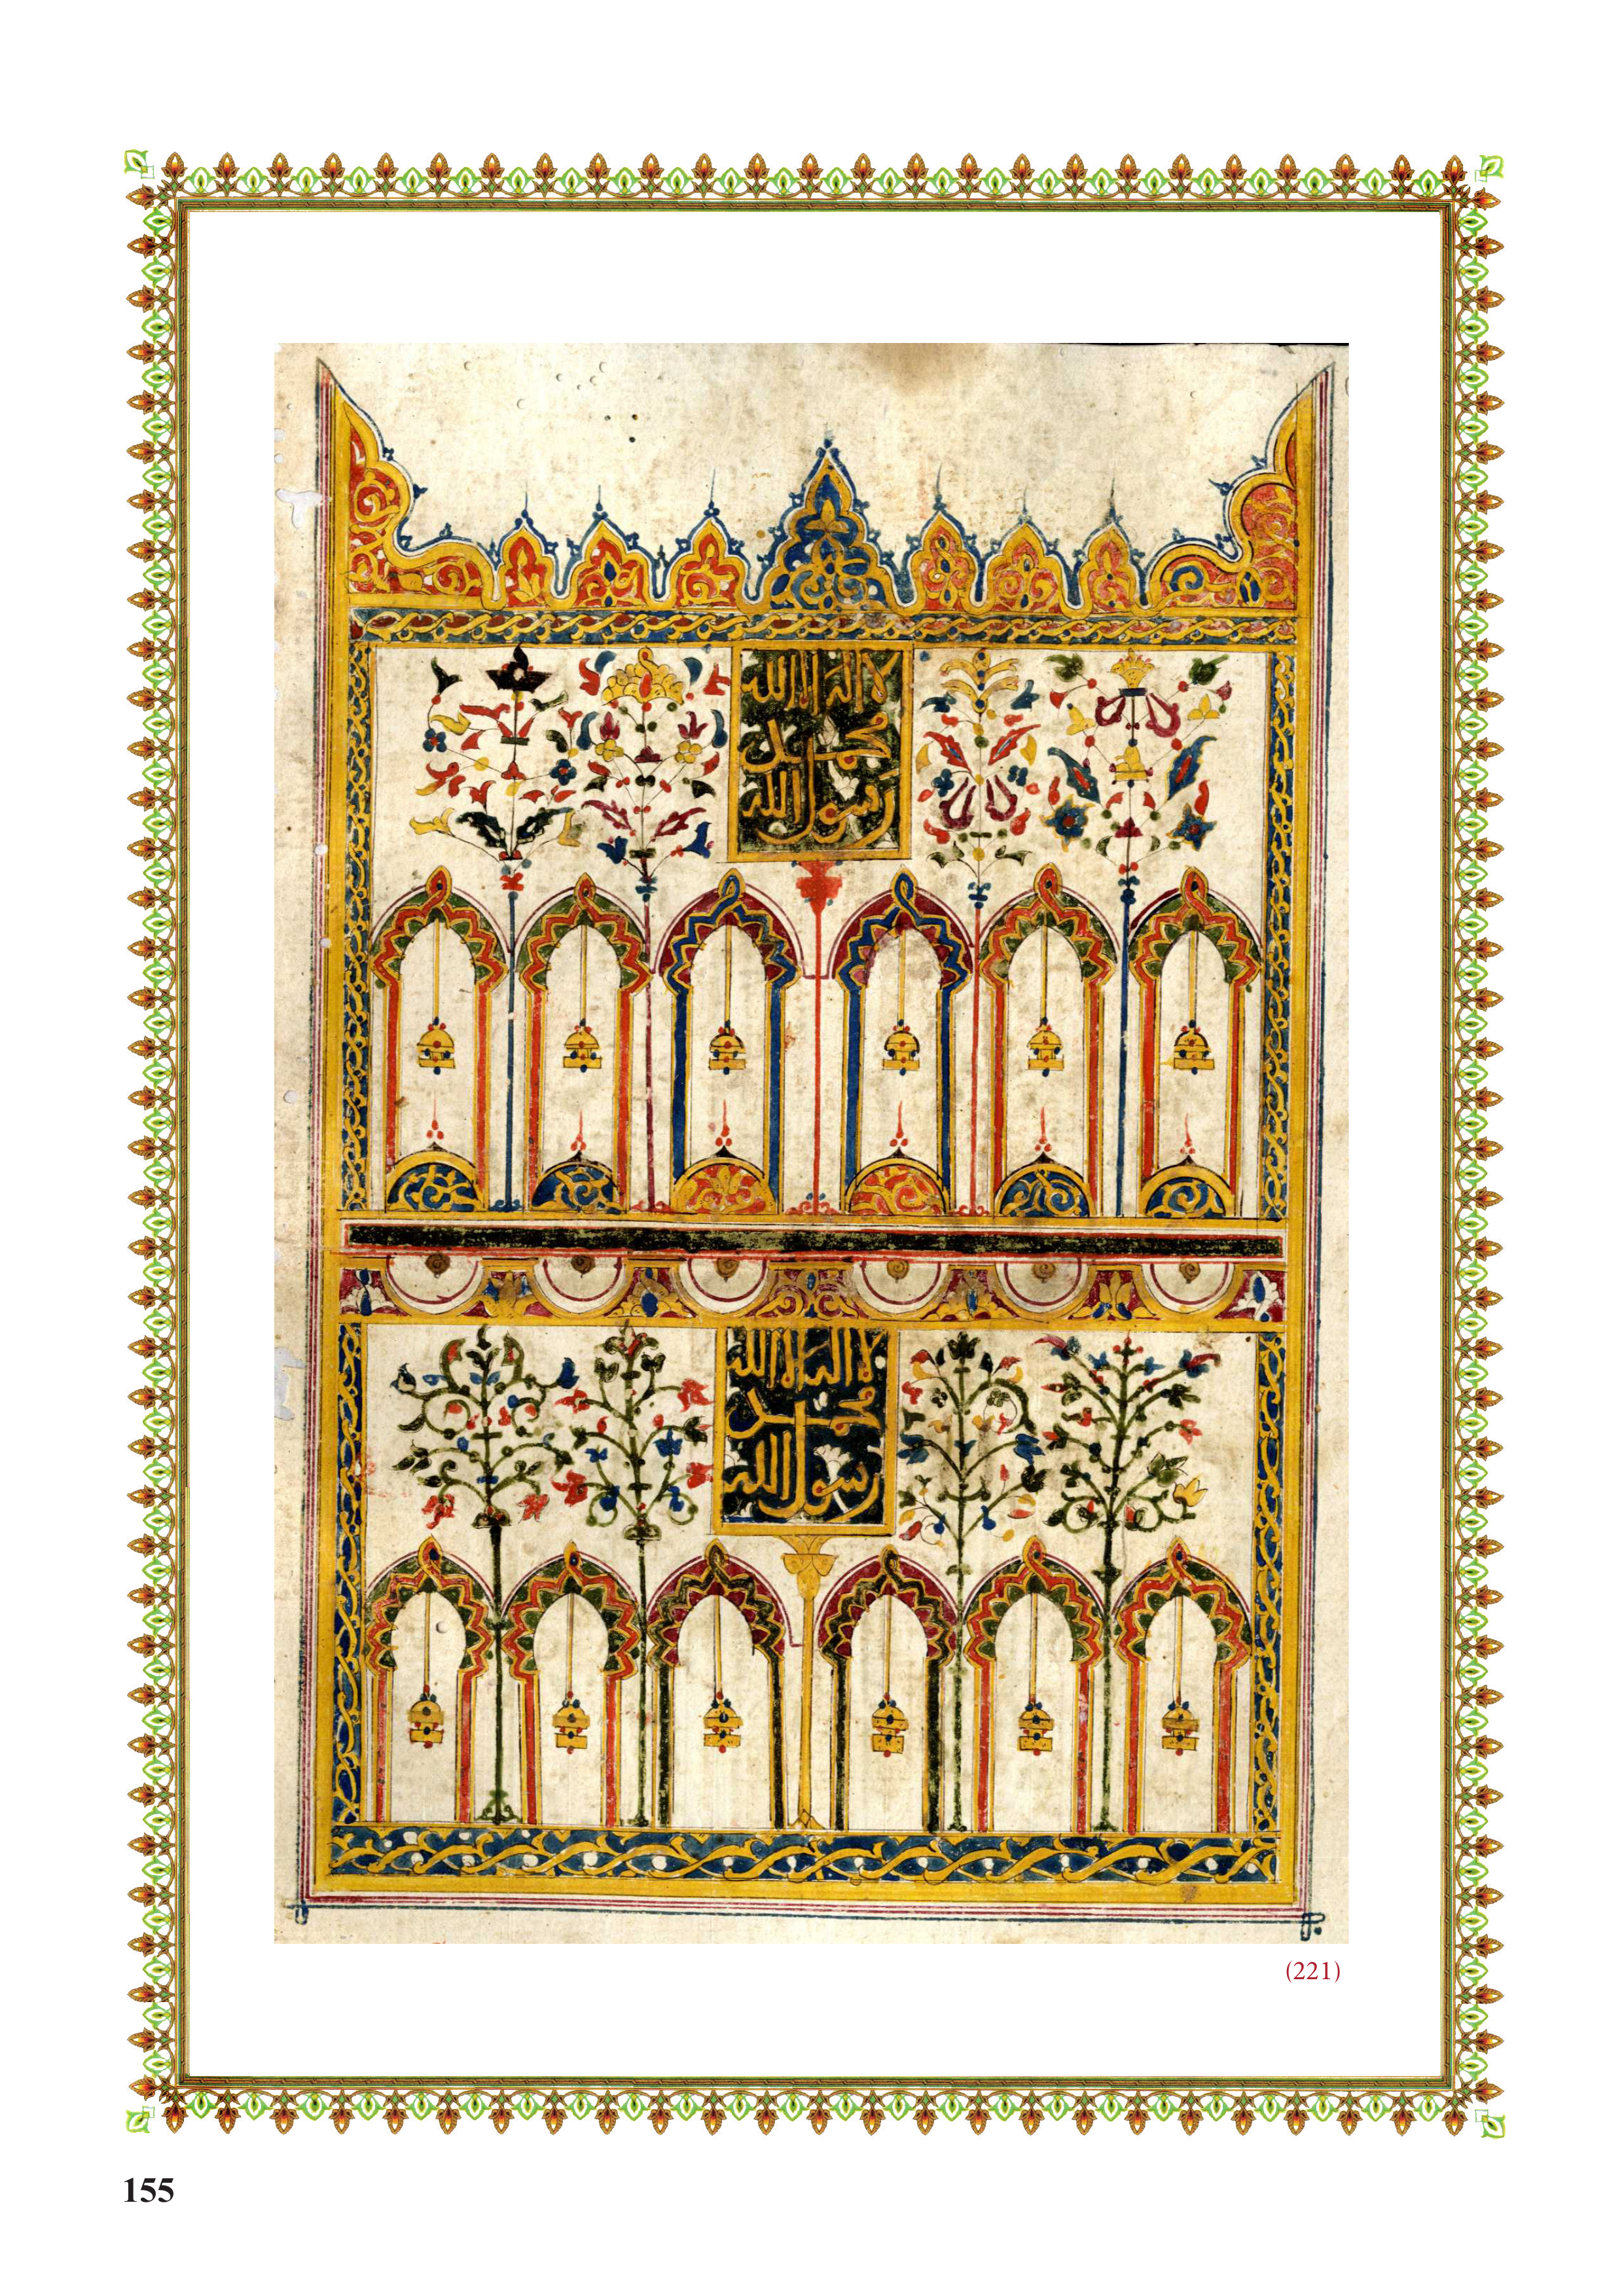 لا إله إلا الله
محمد
رسول الله
لا إله إلا الله
محمد
رسول الله
(221)
155